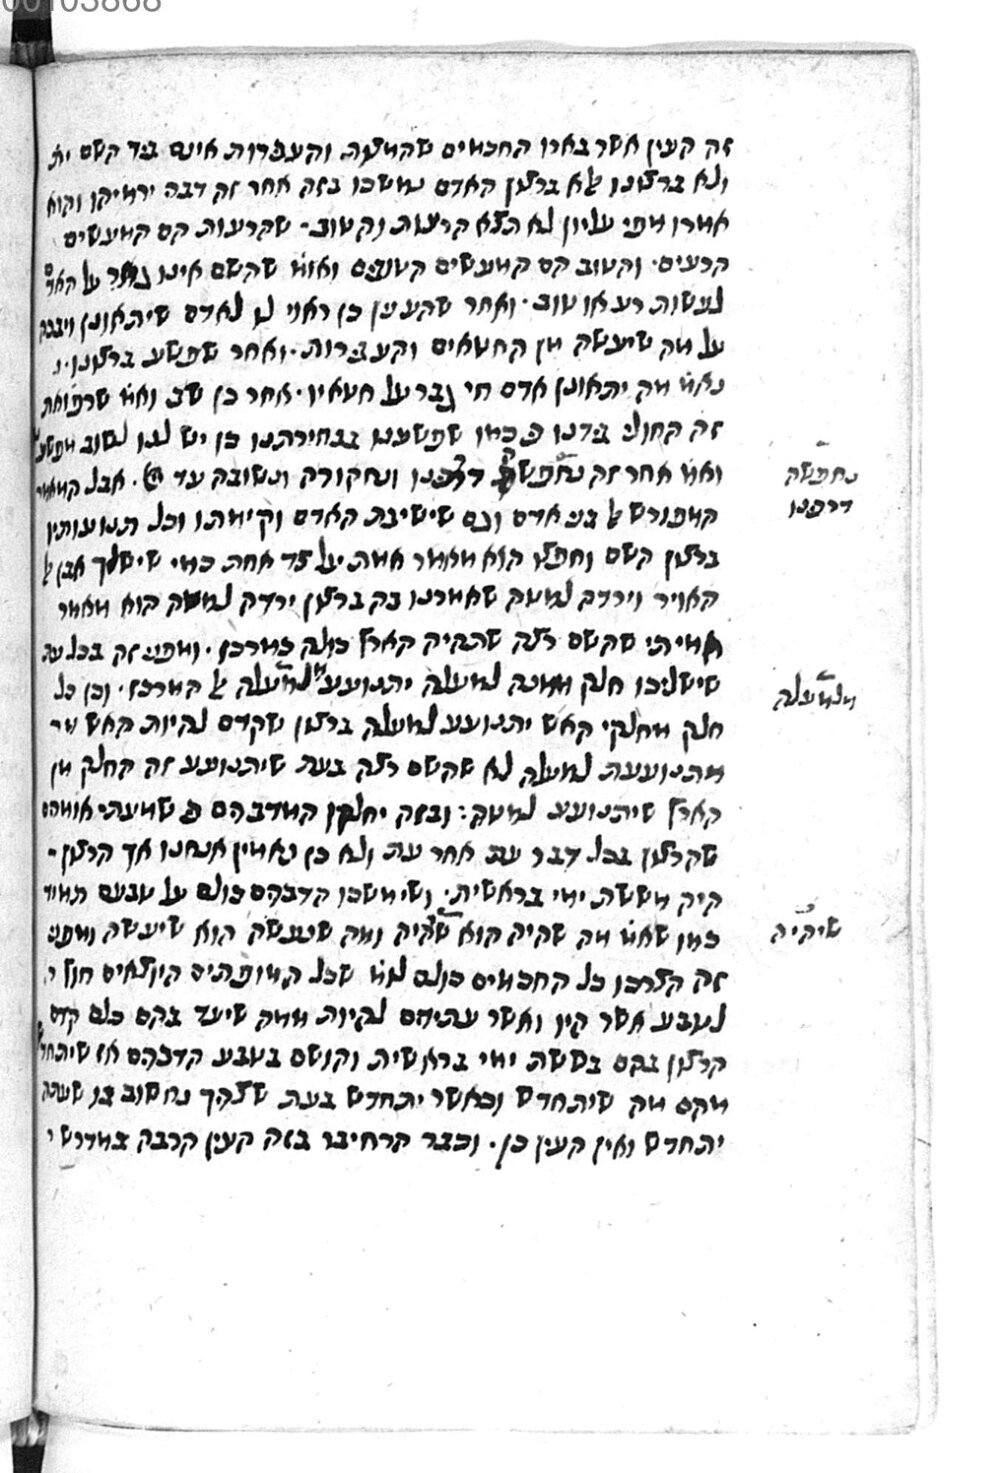 00103868
זה הענין אשר בארו החכמים שהמצוה והעבירות אינם ביד השם ית'
ולא ברצונו אלא ברצון האדם נמשכו בזה אחר זה דבה ירמיהו והוא
אמרו מפי עליון לא תצא הרעות והטוב - שהרעות הם המעשים
הרעים. והטוב הם המעשים הטובים ואומ' שהשם אינו גוזר על האדם
לעשות רע או טוב. ואחר שהענין כן ראוי לו לאדם שיתאונן ויבכה
על מה שיעשה מן החטאים והעבירות. ואחר שפשע ברצונו
נאמ' מה יתאונן אדם חי גבר על חטאיו. אחר כן שב ואמ' שרפואת
זה החולי בידנו כמו שפשענו בבחירתנו כן יש לנו לשוב מפשע
ואמ' אחר זה נחפשה דרכנו ונחקורה ונשובה עד ה'. אבל המאמר
המפורש אל בני אדם וגם שישיבת האדם וקימתו וכל תנועותיו
ברצון השם וחפצו הוא מאמר אמת על צד אחת כמי שישלך אבן אל
האויר וירדה למטה שאמרנו בה ברצון ירדה למטה הוא מאמר
אמיתי שהשם רצה שתהיה הארץ כולה במרכז. ומפני זה בכל עת
שישליכו חלק ממנה למעלה יתנועע מלמעלה אל המרכז. וכן כל
חלק מחלקי האש יתנועע למעלה ברצון שקדם להיות האש
מתנועעת למעלה לא שהשם רצה בעת שיתנועע זה החלק מן
הארץ שיתנועע למטה: ובזה יחלקו המדברים כי שמעתי אומרים
שהרצון בכל דבר עת אחר עת ולא כן נאמין אנחנו אך הרצון -
היה מששת ימי בראשית. ושימשכו הדברים כולם על טבעם תמיד
כמו שאמ' מה שהיה הוא שיהיה ומה שנעשה הוא שיעשה ומפני
זה הצרכו כל החכמים כולם לומ' שכל המופתים היוצאים חוץ
לטבע אשר היו ואשר עתידים להיות ממה שיעד בהם כלם קדם
הרצון בהם בששת ימי בראשית והושם בטבע הדברים אז שיתחדש
מהם מה שיתחדש וכאשר יתחדש בעת שצריך נחשוב בו שעתה
יתחדש ואין הענין כן. וכבר הרחיבו בזה הענין הרבה במדרש
נחפשה
דרכנו
מלמעלה
שיהיה